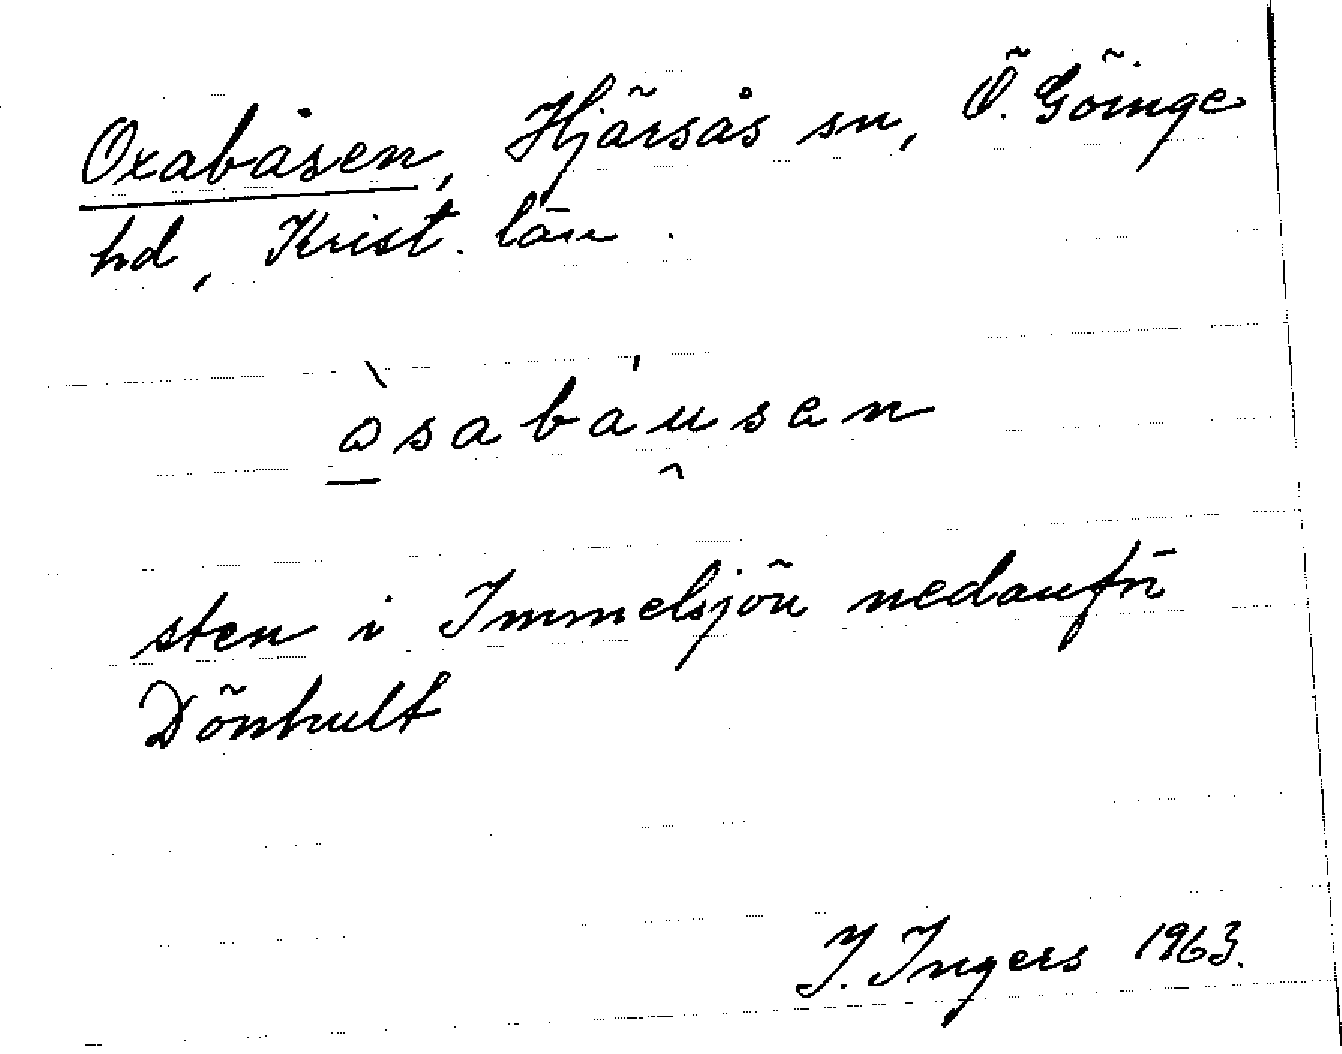 Oxabåsen, Hjärsås sn, Ö. Göinge
hd, Krist. län.
òsabáu̯sen
sten i Immelsjön nedanför
Dönhult
I. Ingers 1963.